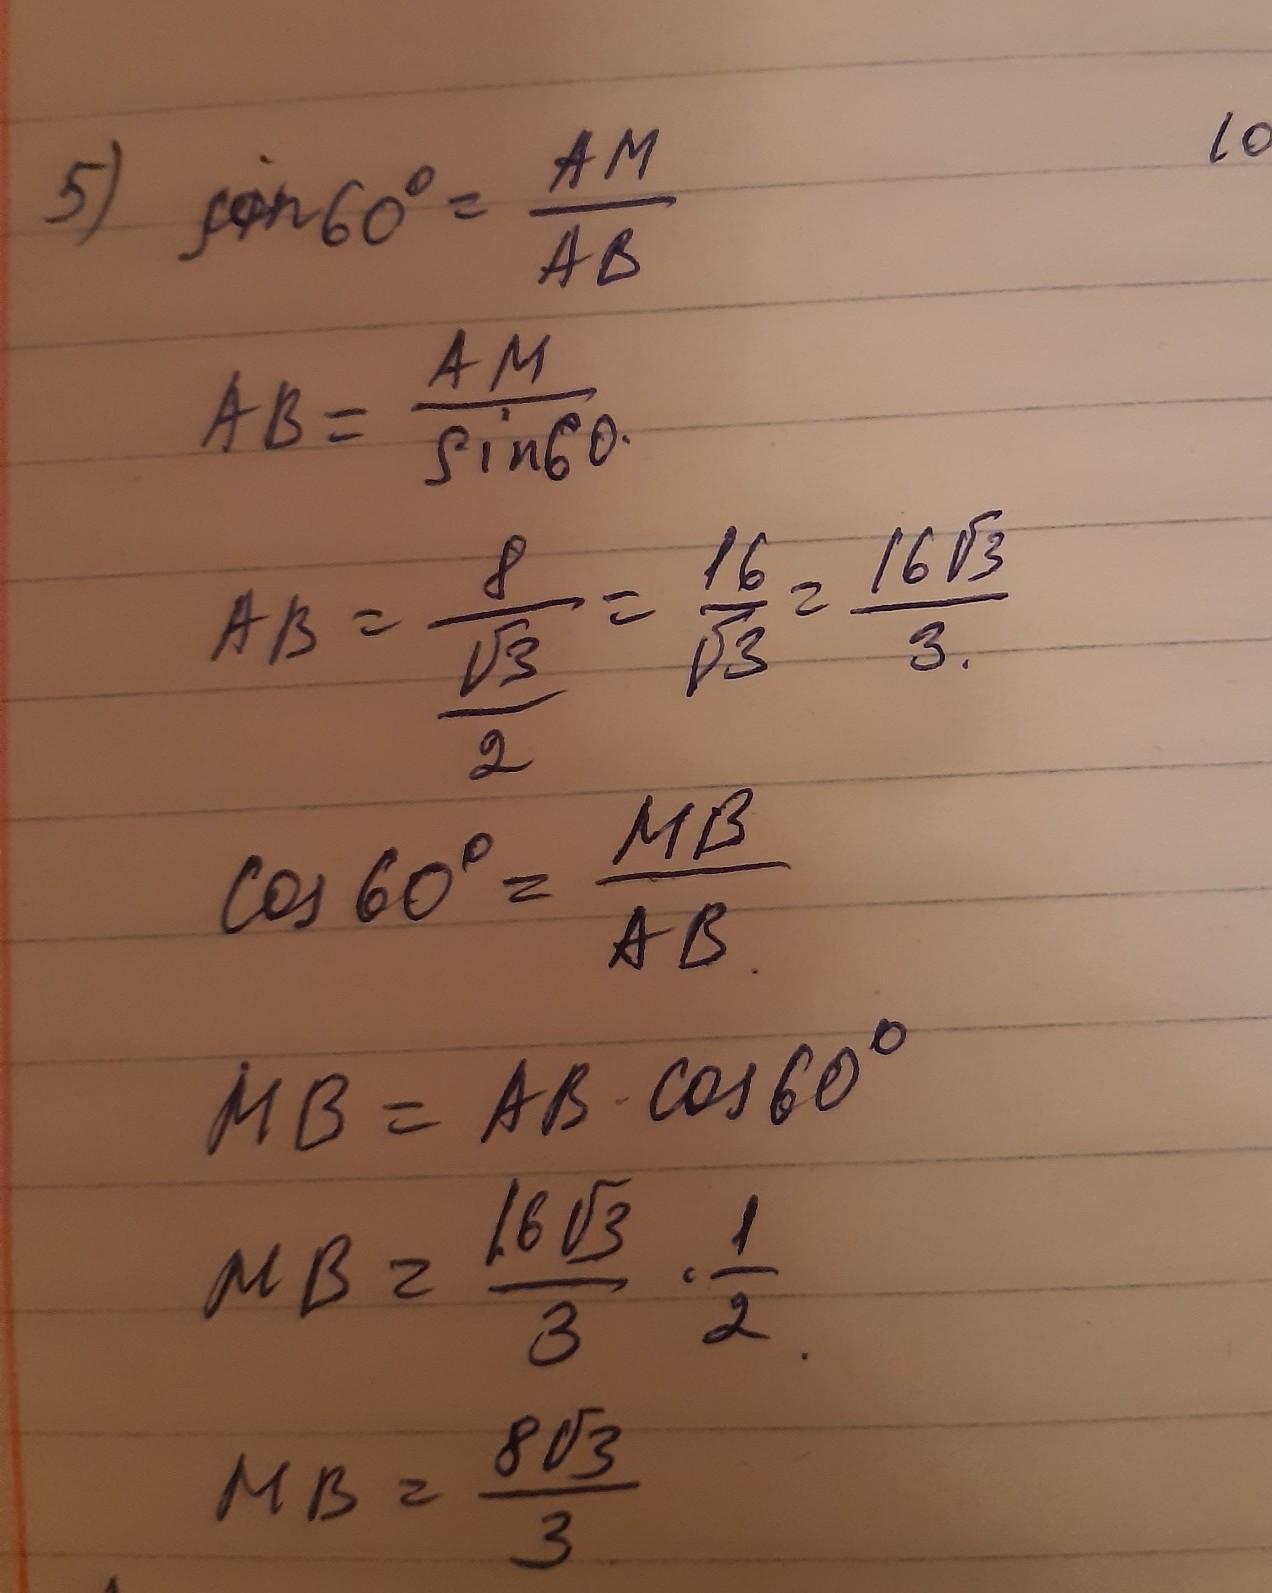 5) sin60° = AM/AB
10
AB = AM/sin60.
AB = 8/(√3/2) = 16/√3 = 16√3/3.
cos60° = MB/AB.
MB = AB · cos60°
MB = 16√3/3 · 1/2.
MB = 8√3/3